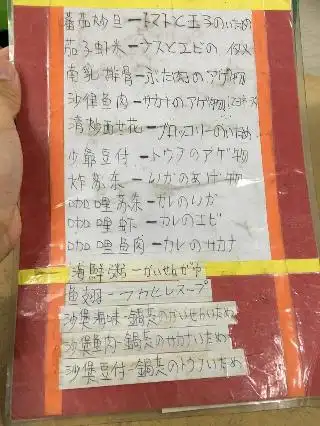 蕃茄炒旦ートマトと玉子のいため
茄子虾米ーナスとエビの
南乳排骨ーぶた肉のアゲ物
沙律魚肉ーサカナのアゲ物
清炒西せ花ーブロッコリーのいため
少爺豆付ートウフのアゲ物
炸苏东ーイカのあげ物
咖喱苏东ーカレのイカ
咖喱虾ーカレのエビ
咖喱魚肉ーカレのサカナ
海鮮粥ーかいせんがゆ
魚翅ーフカヒレスープ
沙煲海味ー鍋煮のかいせんいため
沙煲魚肉ー鍋煮のサカナいため
沙煲豆付ー鍋煮のトウフいため